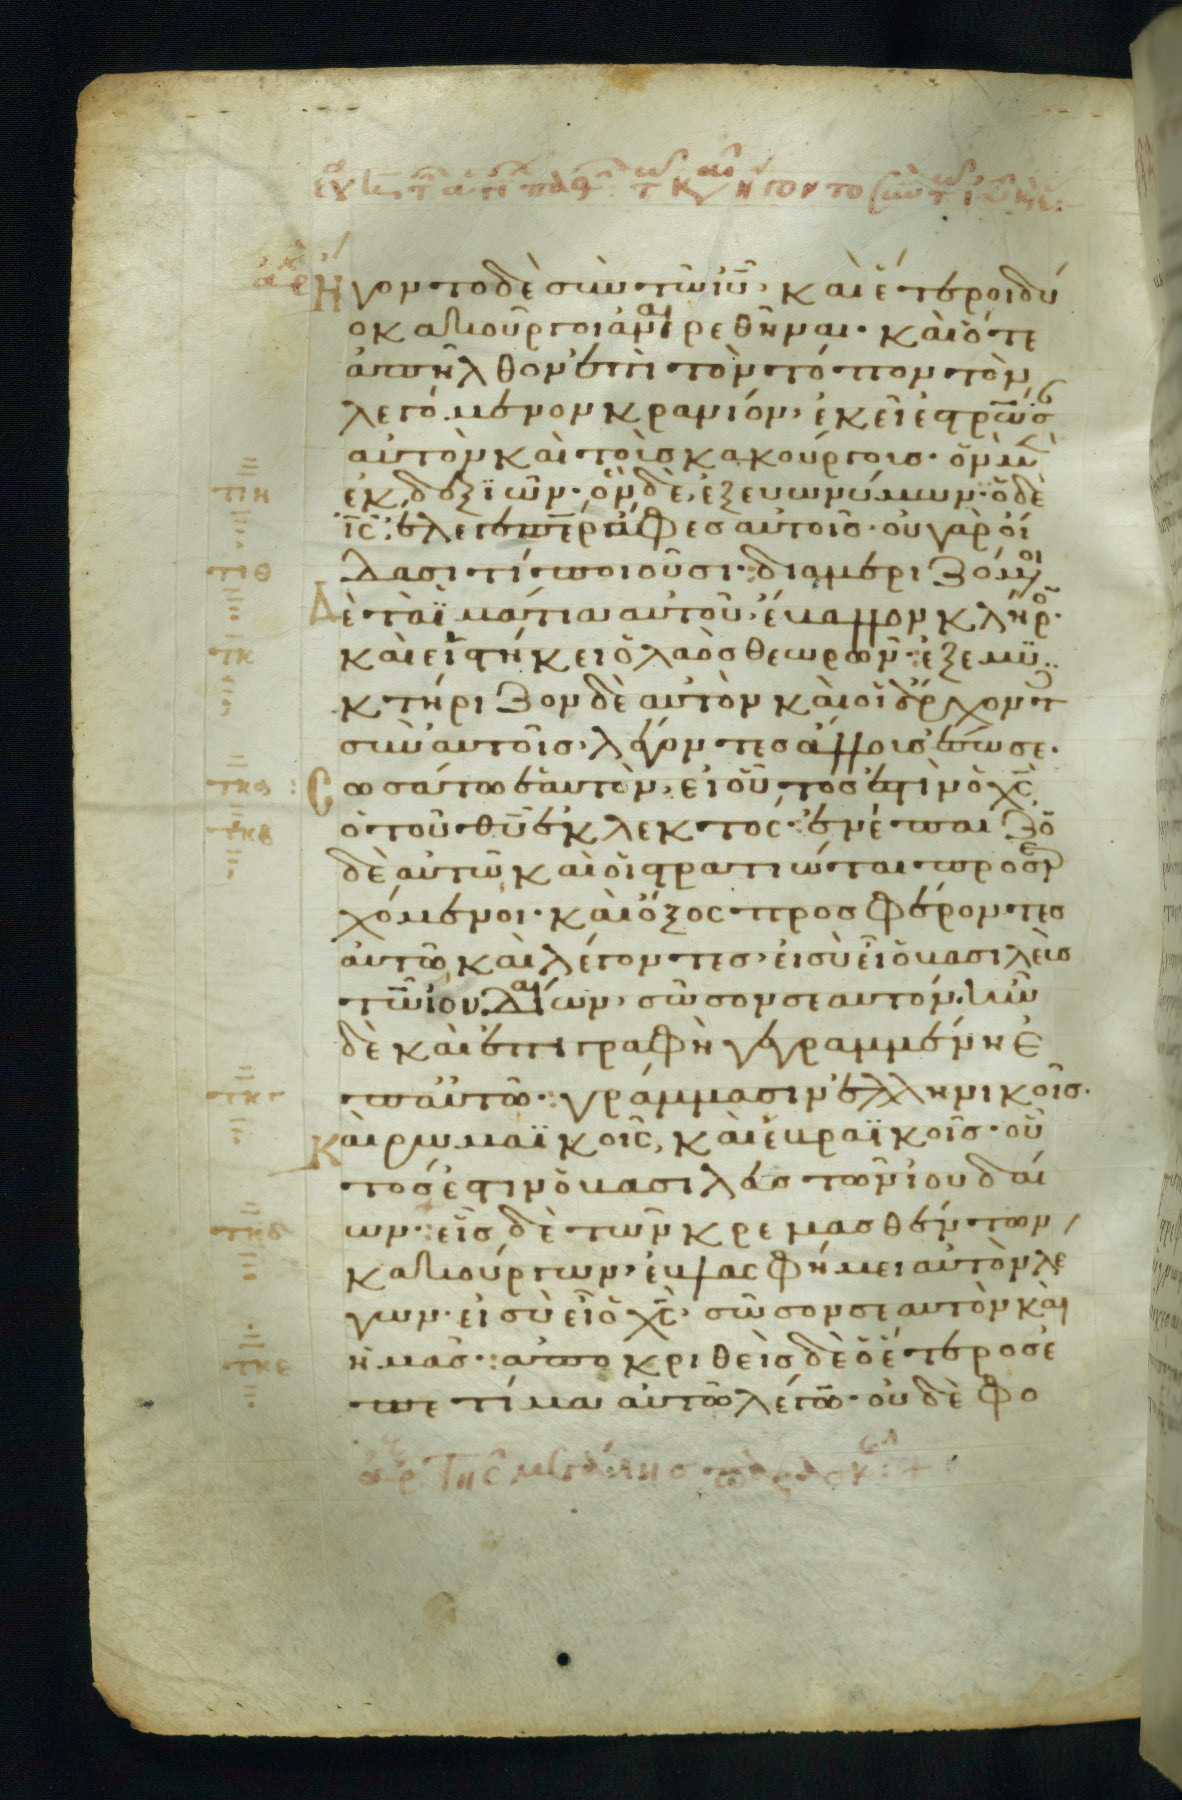 Ηγοντο δὲ σὺν τῶ ἰῦ, καὶ ἕτεροι δύ
ο κακοῦργοι ἀναιρεθῆναι· καὶ ὅτε
ἀπῆλθον ἐπὶ τὸν τόπον τὸν
λεγόμενον κρανίον, ἐκεῖ ἐστρωσ
αὐτὸν καὶ τοὺς κακούργους· ὃν μὲν
ἐκ δεξϊῶν· ὃν δὲ, ἐξ εὐωνύμων· ὁ δὲ
ΤΙΗ
ἰς ἔλεγεν· περ ἄφες αὐτοῖς· οὐ γὰρ οἴ
δασι τί ποιοῦσι· διαμεριζόμενοι
ΤΙΘ
Δὲ τὰ ϊμάτια αὐτοῦ, ἔβαλλον κλῆρον·
καὶ εἱστήκει ὁ λαὸς θεωρῶν· ἐξεμυ
ΤΚ
κτήριζον δὲ αὐτὸν καὶ οἱ ἄρχοντ
σὺν αὐτοῖς, λέγοντες ἄλλους ἔσωσε·
Σωσάτω ἑαυτὸν, εἰ οὗτός ἐστὶν ὁ χς
ὁ τοῦ θῦ ἐκλεκτος· ἐνέπαιζο
ΤΚΒ
δὲ αὐτῶ καὶ οἱ στρατιῶται προσερ
χόμενοι· καὶ ὄξος προσφέροντες
αὐτῶ, καὶ λέγοντες, εἰ σὺ εἶ ὁ βασιλεὺς
τῶν ἰουδαίων, σῶσον σεαυτόν· ἦν
δὲ καὶ ἐπιγραφὴ γεγραμμένη ἐ
π αὐτῶ· γράμμασιν ἑλληνικοῖς·
ΤΚΓ
Καὶ ρωμαϊκοῖς, καὶ ἑβραϊκοῖς· οὗ
τός ἐστιν ὁ βασιλεὺς τῶν ἰουδαί
ων· εἷς δὲ τῶν κρεμασθέντων
ΤΚΔ
κακούργων, ἐβλασφήμει αὐτὸν λέ
γων· εἰ σὺ εἶ ὁ χς, σῶσον σεαυτὸν καὶ
ἡμᾶς· ἀποκριθεὶς δὲ ὁ ἕτερος ἐ
ΤΚΕ
πετίμα αὐτῶ λέγων· οὐδὲ φο